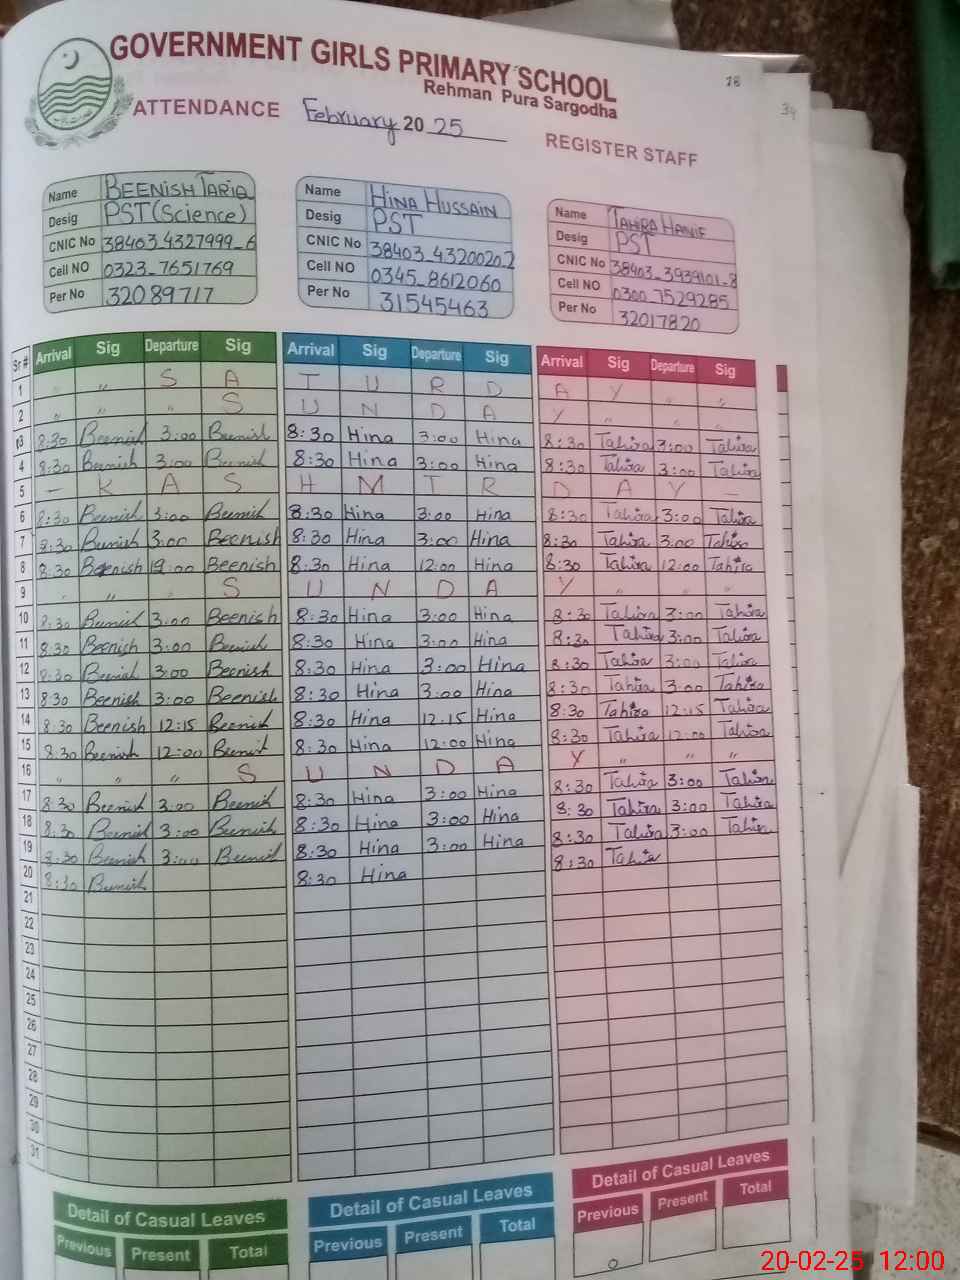 GOVERNMENT GIRLS PRIMARY SCHOOL
Rehman Pura Sargodha
28
34
ATTENDANCE February 2025
REGISTER STAFF
Name BEENISH TARIQ Name HINA HUSSAIN Name TAHIRA HANIF
Desig PST(Science) Desig PST Desig PST
CNIC No 38403_4327999_6 CNIC No 38403_4320020_2 CNIC No 38403_3939101_8
Cell NO 0323_7651769 Cell NO 0345_8612060 Cell NO 0300_7529285
Per No 32089717 Per No 31545463 Per No 32017820
Sr# Arrival Sig Departure Sig Arrival Sig Departure Sig Arrival Sig Departure Sig
1 " " S A T U R D A Y " "
2 " " " S U N D A Y " " "
3 8:30 Beenish 3:00 Beenish 8:30 Hina 3:00 Hina 8:30 Tahira 3:00 Tahira
4 8:30 Beenish 3:00 Beenish 8:30 Hina 3:00 Hina 8:30 Tahira 3:00 Tahira
5 – K A S H M I R D A Y –
6 8:30 Beenish 3:00 Beenish 8:30 Hina 3:00 Hina 8:30 Tahira 3:00 Tahira
7 8:30 Beenish 3:00 Beenish 8:30 Hina 3:00 Hina 8:30 Tahira 3:00 Tahira
8 8:30 Beenish 12:00 Beenish 8:30 Hina 12:00 Hina 8:30 Tahira 12:00 Tahira
9 " " " S U N D A Y " " "
10 8:30 Beenish 3:00 Beenish 8:30 Hina 3:00 Hina 8:30 Tahira 3:00 Tahira
11 8:30 Beenish 3:00 Beenish 8:30 Hina 3:00 Hina 8:30 Tahira 3:00 Tahira
12 8:30 Beenish 3:00 Beenish 8:30 Hina 3:00 Hina 8:30 Tahira 3:00 Tahira
13 8:30 Beenish 3:00 Beenish 8:30 Hina 3:00 Hina 8:30 Tahira 3:00 Tahira
14 8:30 Beenish 12:15 Beenish 8:30 Hina 12:15 Hina 8:30 Tahira 12:15 Tahira
15 8:30 Beenish 12:00 Beenish 8:30 Hina 12:00 Hina 8:30 Tahira 12:00 Tahira
16 " " " S U N D A Y " " "
17 8:30 Beenish 3:00 Beenish 8:30 Hina 3:00 Hina 8:30 Tahira 3:00 Tahira
18 8:30 Beenish 3:00 Beenish 8:30 Hina 3:00 Hina 8:30 Tahira 3:00 Tahira
19 8:30 Beenish 3:00 Beenish 8:30 Hina 3:00 Hina 8:30 Tahira 3:00 Tahira
20 8:30 Beenish 8:30 Hina 8:30 Tahira
21
22
23
24
25
26
27
28
29
30
31
Detail of Casual Leaves Detail of Casual Leaves Detail of Casual Leaves
Previous Present Total Previous Present Total Previous Present Total
0
20-02-25 12:00